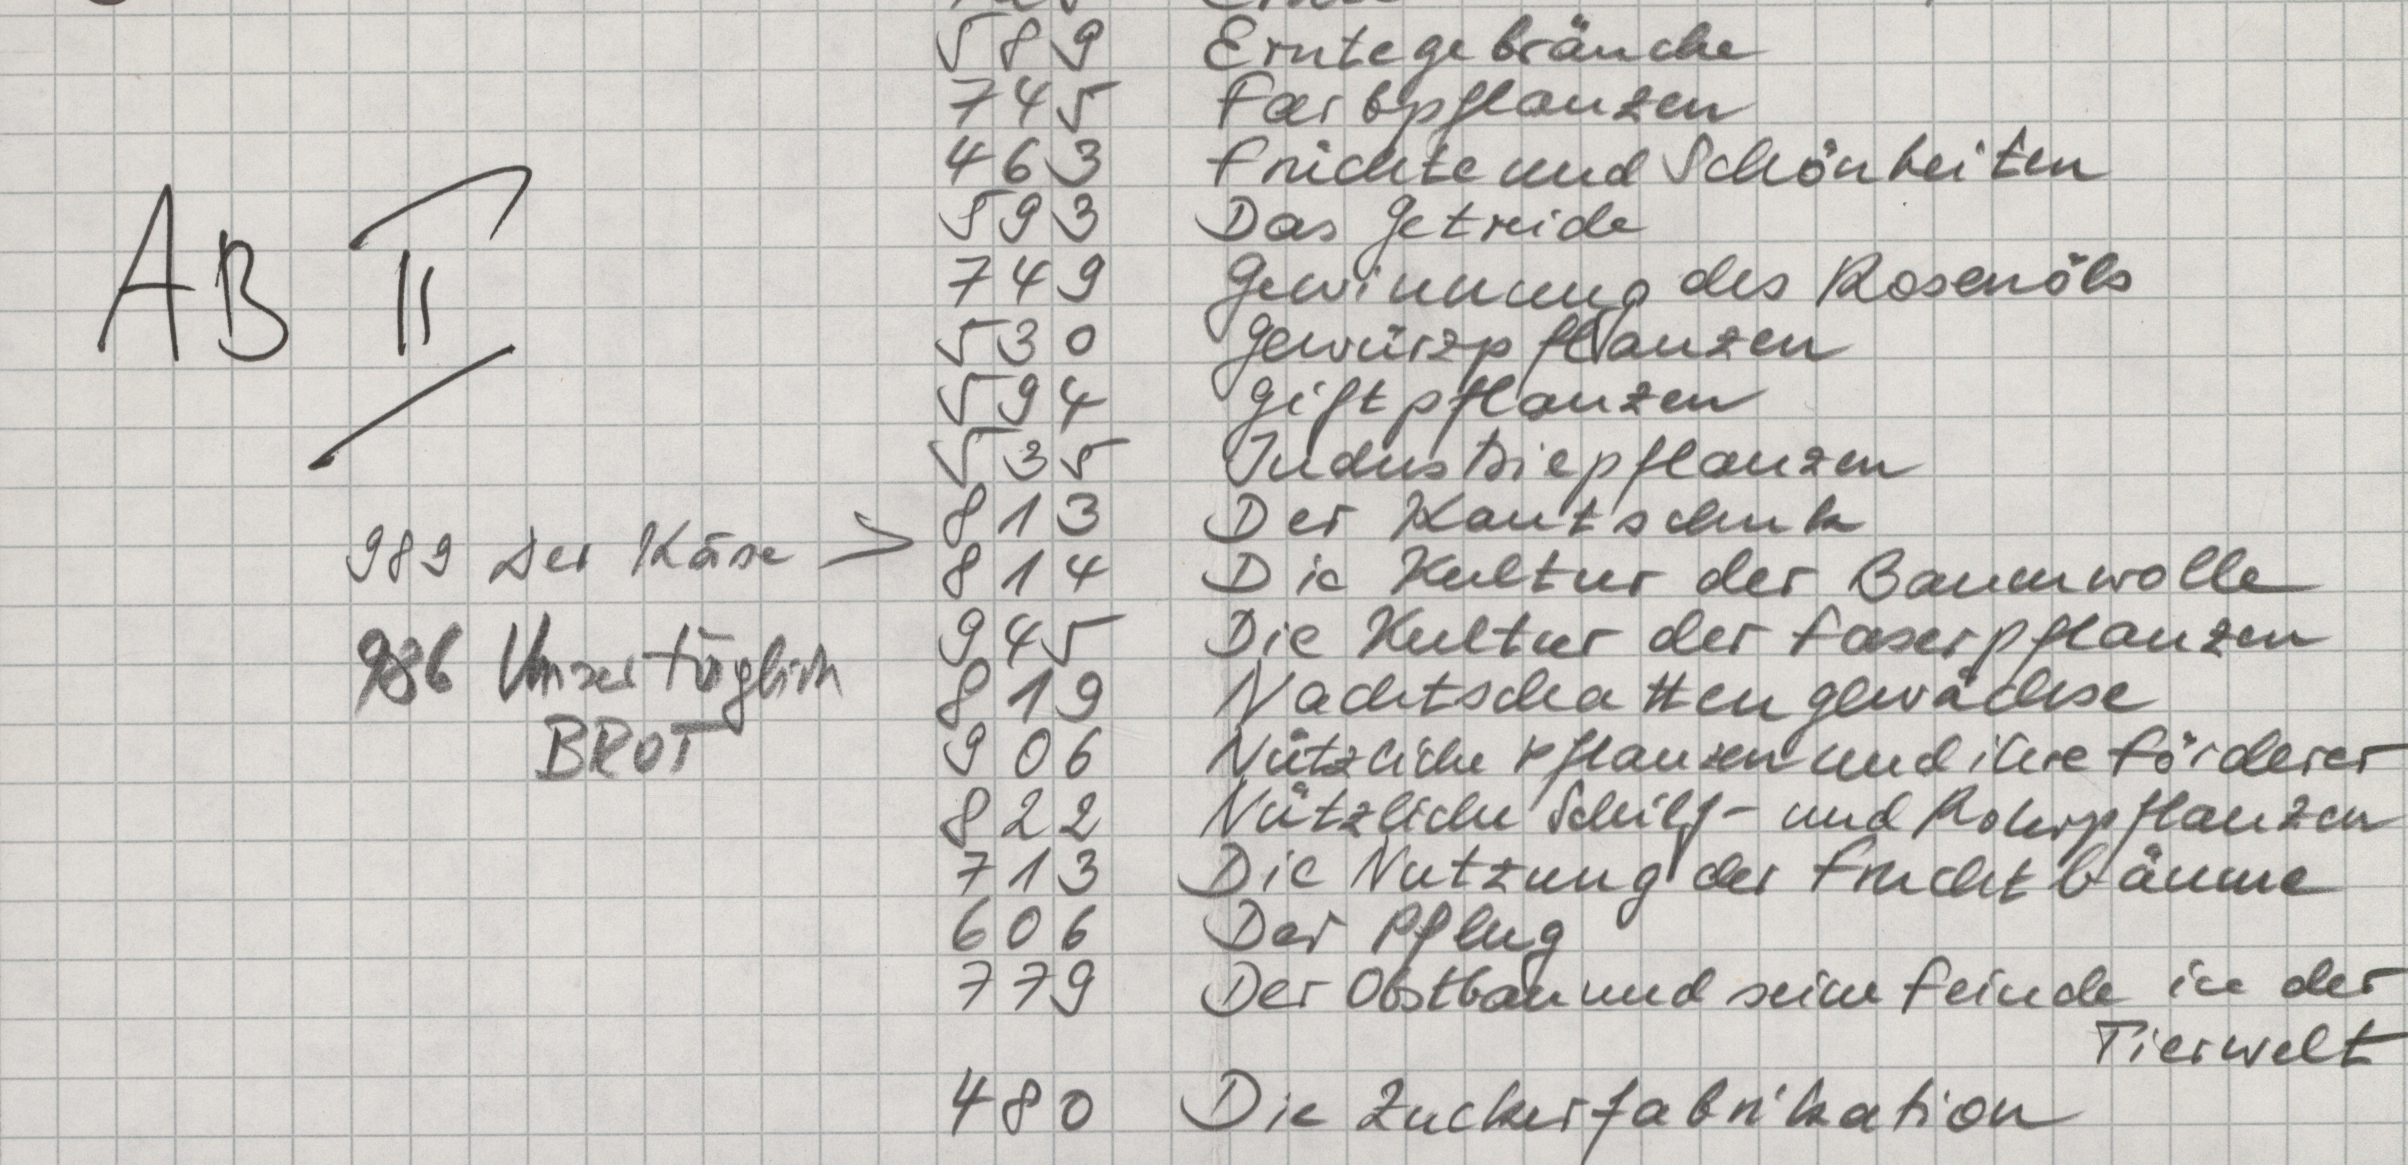 589 Erntegebräuche
745 Farbpflanzen
463 Früchte und Schönheiten
593 Das Getreide
749 Gewinnung des Rosenöls
AB II
530 Gewürzpflanzen
594 Giftpflanzen
535 Industriepflanzen
813 Der Kautschuk
989 Der Käse >
814 Die Kultur der Baumwolle
945 Die Kultur der Faserpflanzen
986 Unser täglich
BROT
819 Nachtschattengewächse
906 Nützliche Pflanzen und ihre Förderer
822 Nützliche Schilf- und Rohrpflanzen
713 Die Nutzung der Fruchtbäume
606 Der Pflug
779 Der Obstbau und seine Feinde in der
Tierwelt
480 Die Zuckerfabrikation